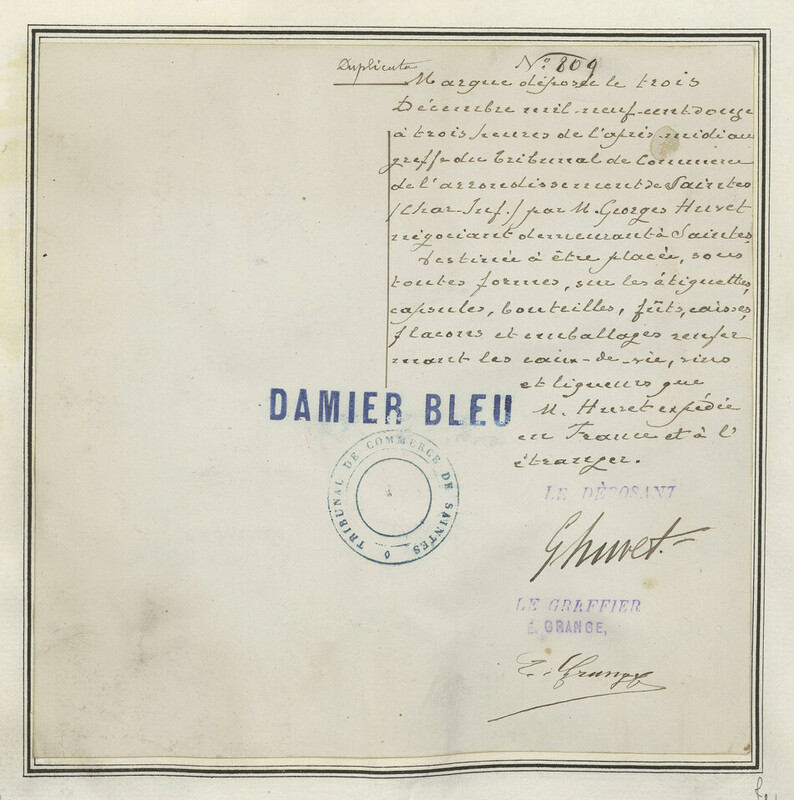 Duplicata
N° 809
Marque déposée le trois
Décembre mil-neuf-cent-douze
à trois heures de l'après-midi au
greffe du Tribunal de Commerce
de l'arrondissement de Saintes
/Char-Inf./ par M. Georges Huvet
négociant demeurant à Saintes,
destinée à être placée, sous
toutes formes, sur les étiquettes,
capsules, bouteilles, fûts, caisses,
flacons et emballages renfer
mant les eaux-de-vie, vins
et liqueurs que
M. Huvet expédie
en France et à l'
étranger.
DAMIER BLEU
TRIBUNAL DE COMMERCE DE SAINTES
LE DÉPOSANT
Ghuvet.
LE GRAFFIER
E. GRANGE,
E. Grange